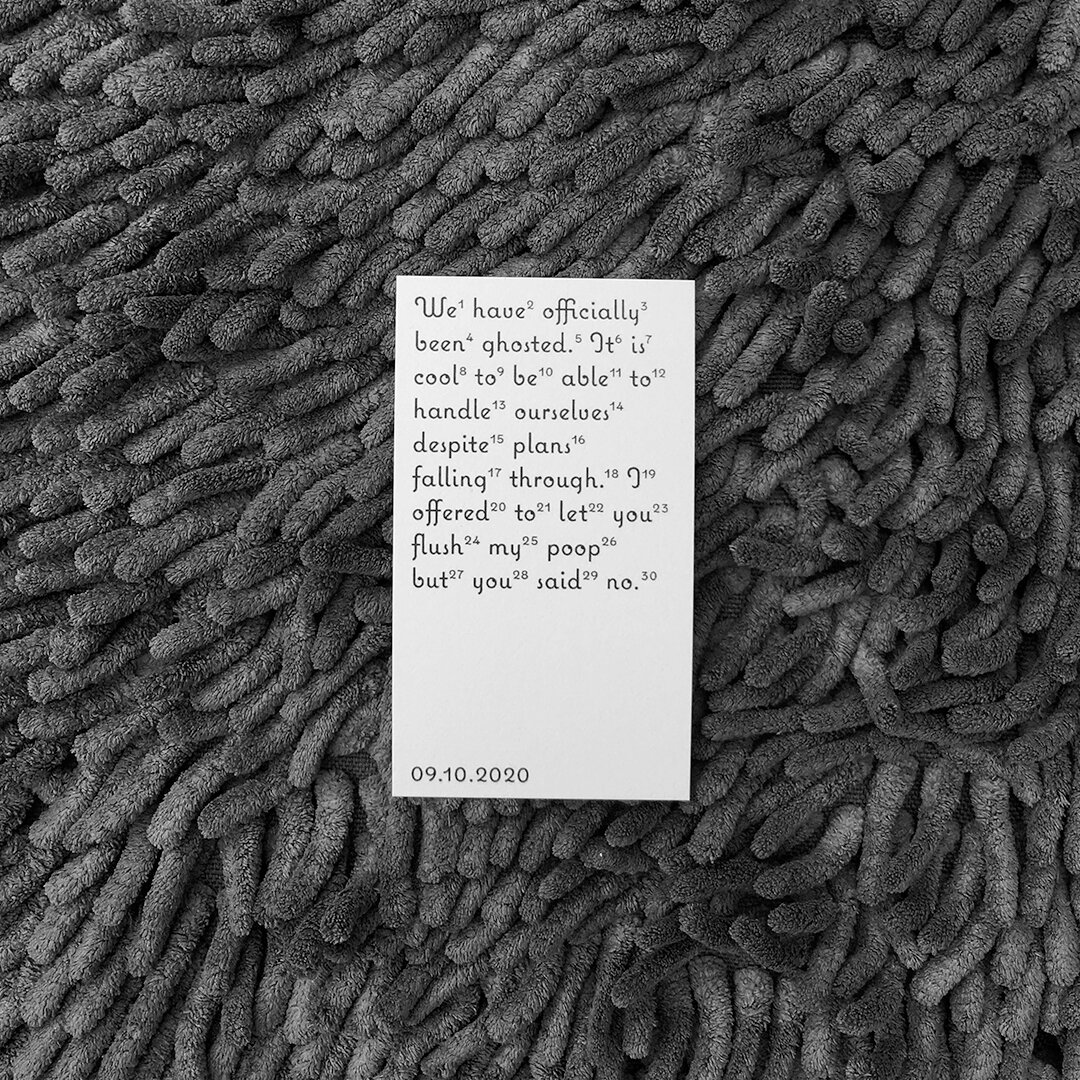 We¹ have² officially³
been⁴ ghosted.⁵ It⁶ is⁷
cool⁸ to⁹ be¹⁰ able¹¹ to¹²
handle¹³ ourselves¹⁴
despite¹⁵ plans¹⁶
falling¹⁷ through.¹⁸ I¹⁹
offered²⁰ to²¹ let²² you²³
flush²⁴ my²⁵ poop²⁶
but²⁷ you²⁸ said²⁹ no.³⁰
09.10.2020